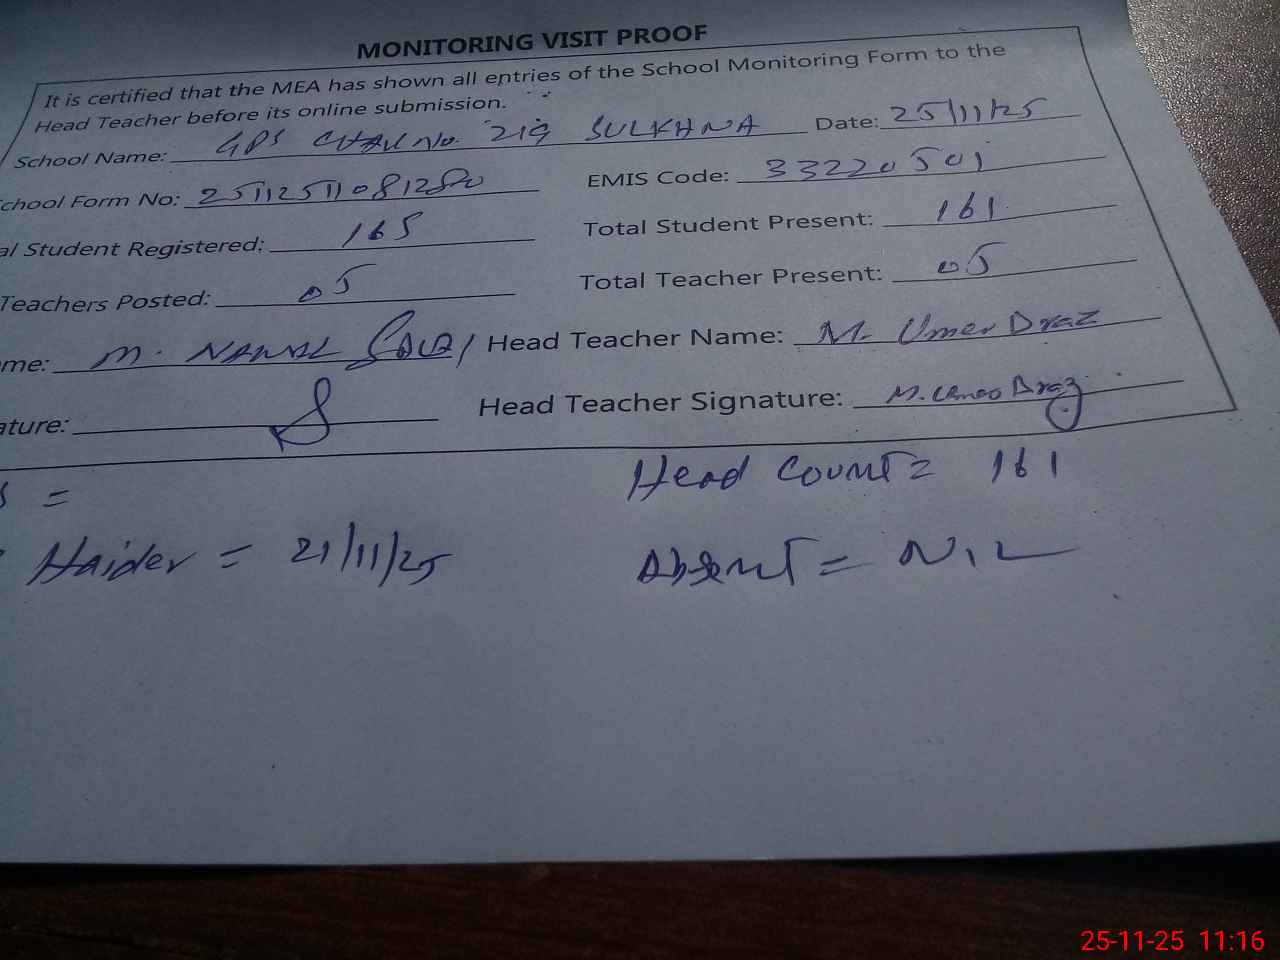 MONITORING VISIT PROOF
It is certified that the MEA has shown all entries of the School Monitoring Form to the
Head Teacher before its online submission.
School Name: GPS CHAK No. 219 SULKHNA Date: 25/11/25
chool Form No: 25112511081280 EMIS Code: 33220501
al Student Registered: 165 Total Student Present: 161
Teachers Posted: 05 Total Teacher Present: 05
me: M. NAWAL Head Teacher Name: M. Umer Draz
ature: Head Teacher Signature: M. Umer Draz
s = Head Count = 161
Haider = 21/11/25 Absent = NIL
25-11-25 11:16